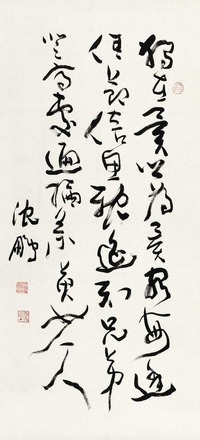 獨在異鄉為異客每逢
佳節倍思親遙知兄弟
登高處遍插茱萸少一人
沈鵬